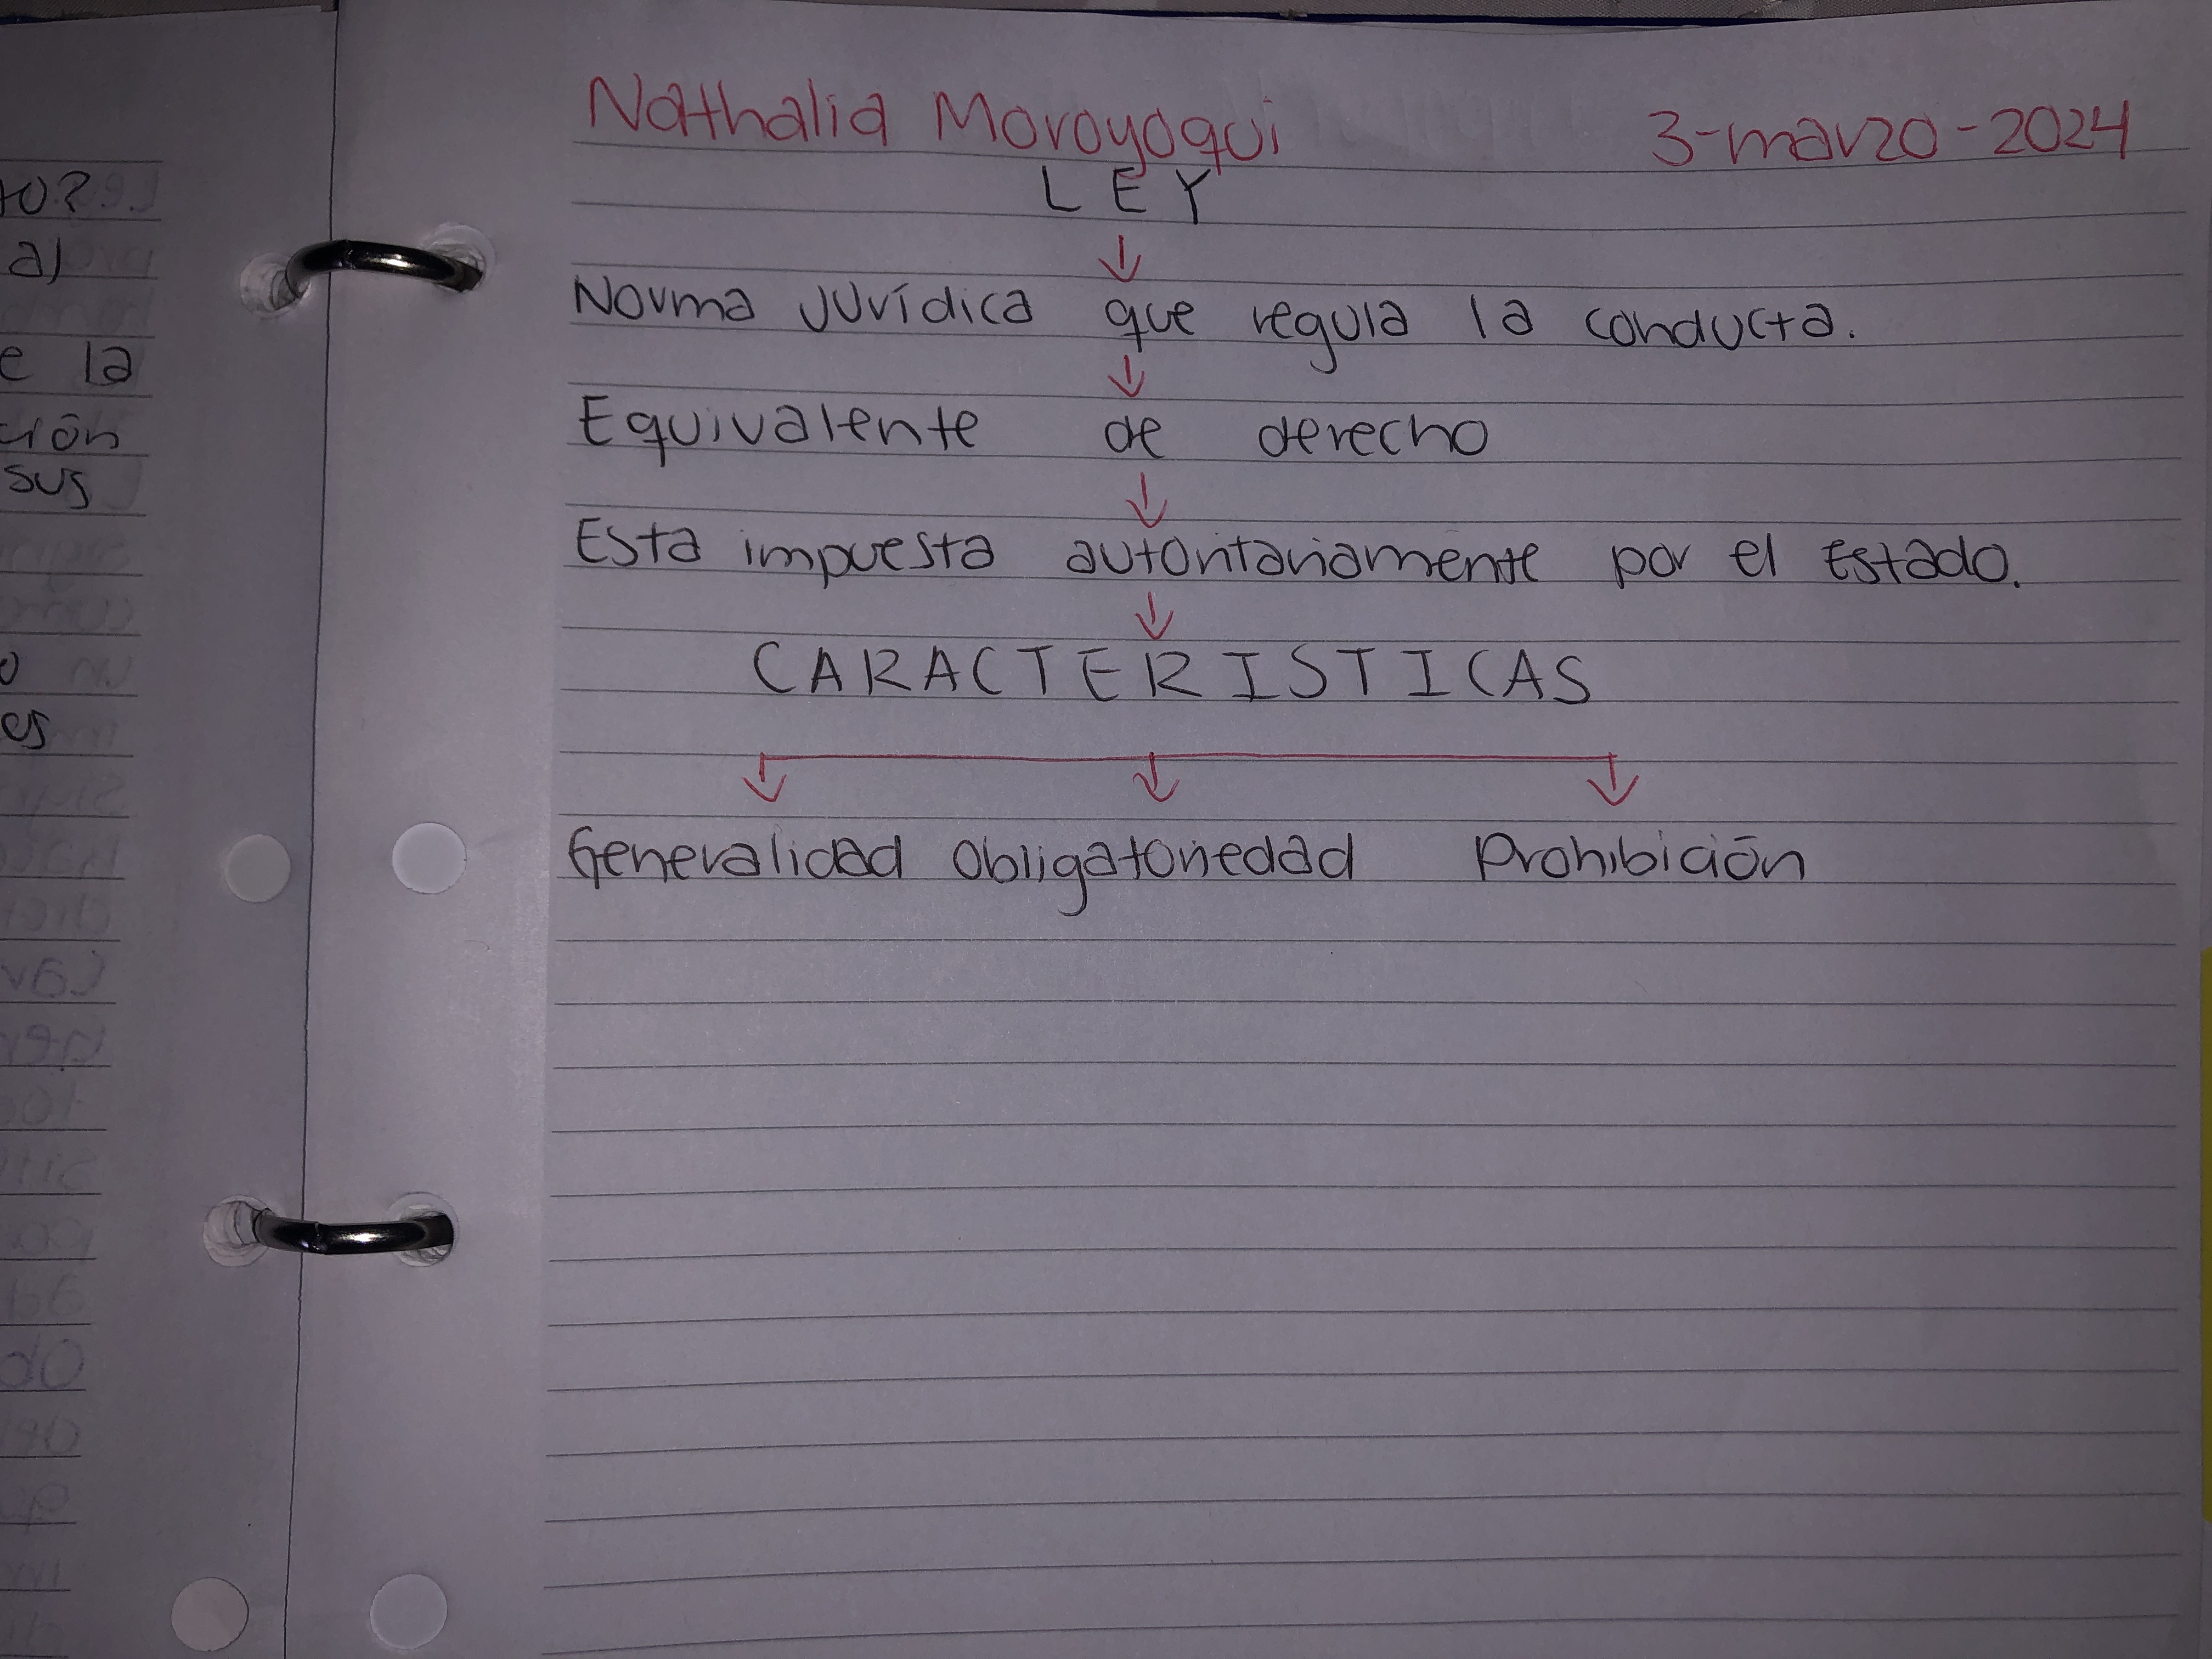 Nathalia Moroyoqui 3-marzo-2024
LEY
Norma Jurídica que regula la conducta.
Equivalente de derecho
Esta impuesta autoritariamente por el Estado.
CARACTERISTICAS
Generalidad Obligatoriedad Prohibición
to?
a)
e la
ción
sus
o
es